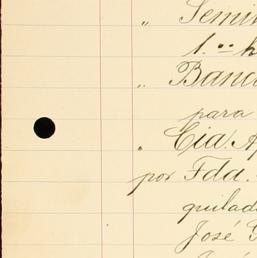 „ Semin
1.º
„ Banc
para
„ Cia. A
por Fdd.
quilad
José G
José